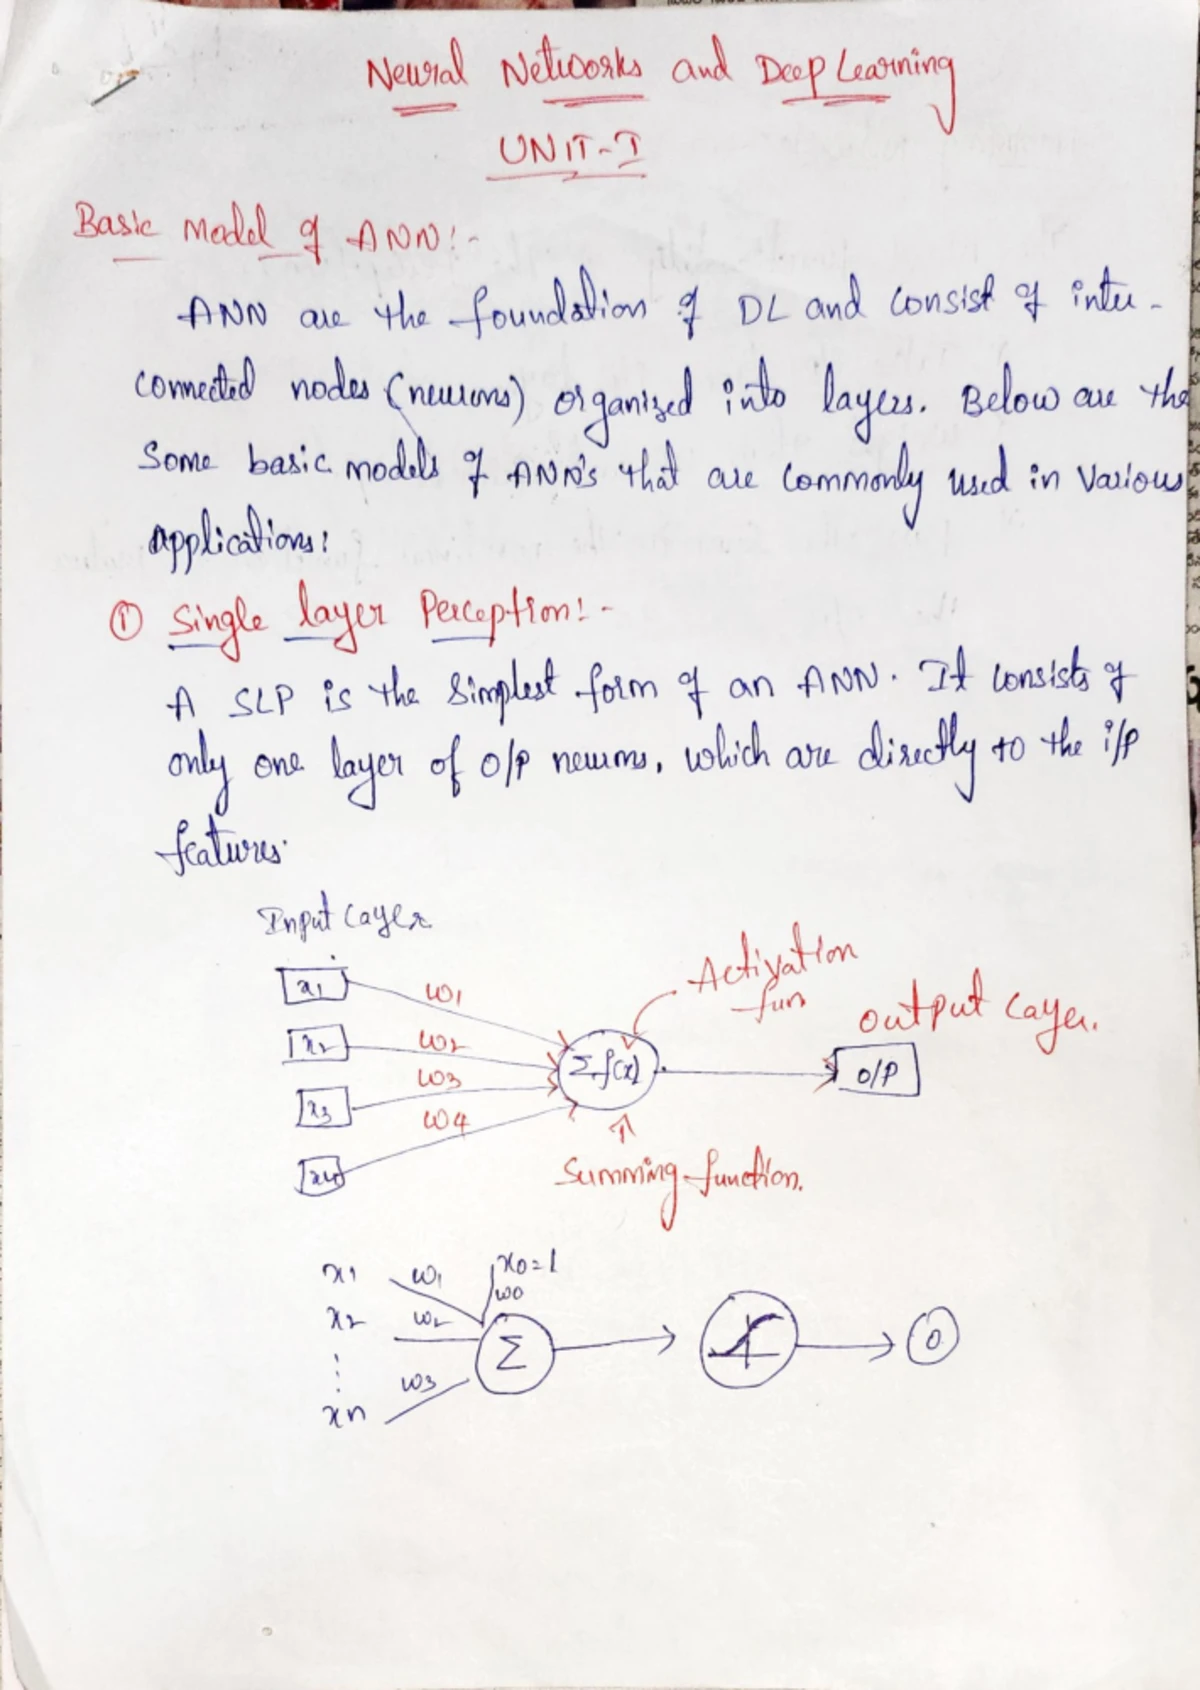 Neural Networks and Deep Learning
UNIT-I
Basic Model of ANN:-
ANN are the foundation of DL and consist of inter-
connected nodes (neurons) organized into layers. Below are the
Some basic models of ANN's that are commonly used in various
applications:
① Single layer Perception:-
A SLP is the simplest form of an ANN. It consists of
only one layer of O/P neurons, which are directly to the i/p
features.
Input Layer
x1 w1
x2 w2
x3 w3
x4 w4
Activation
fun
Output Layer.
Σ f(x)
O/P
Summing function.
x1 w1 x0=1
w0
x2 w2
Σ
O
⋮
w3
xn